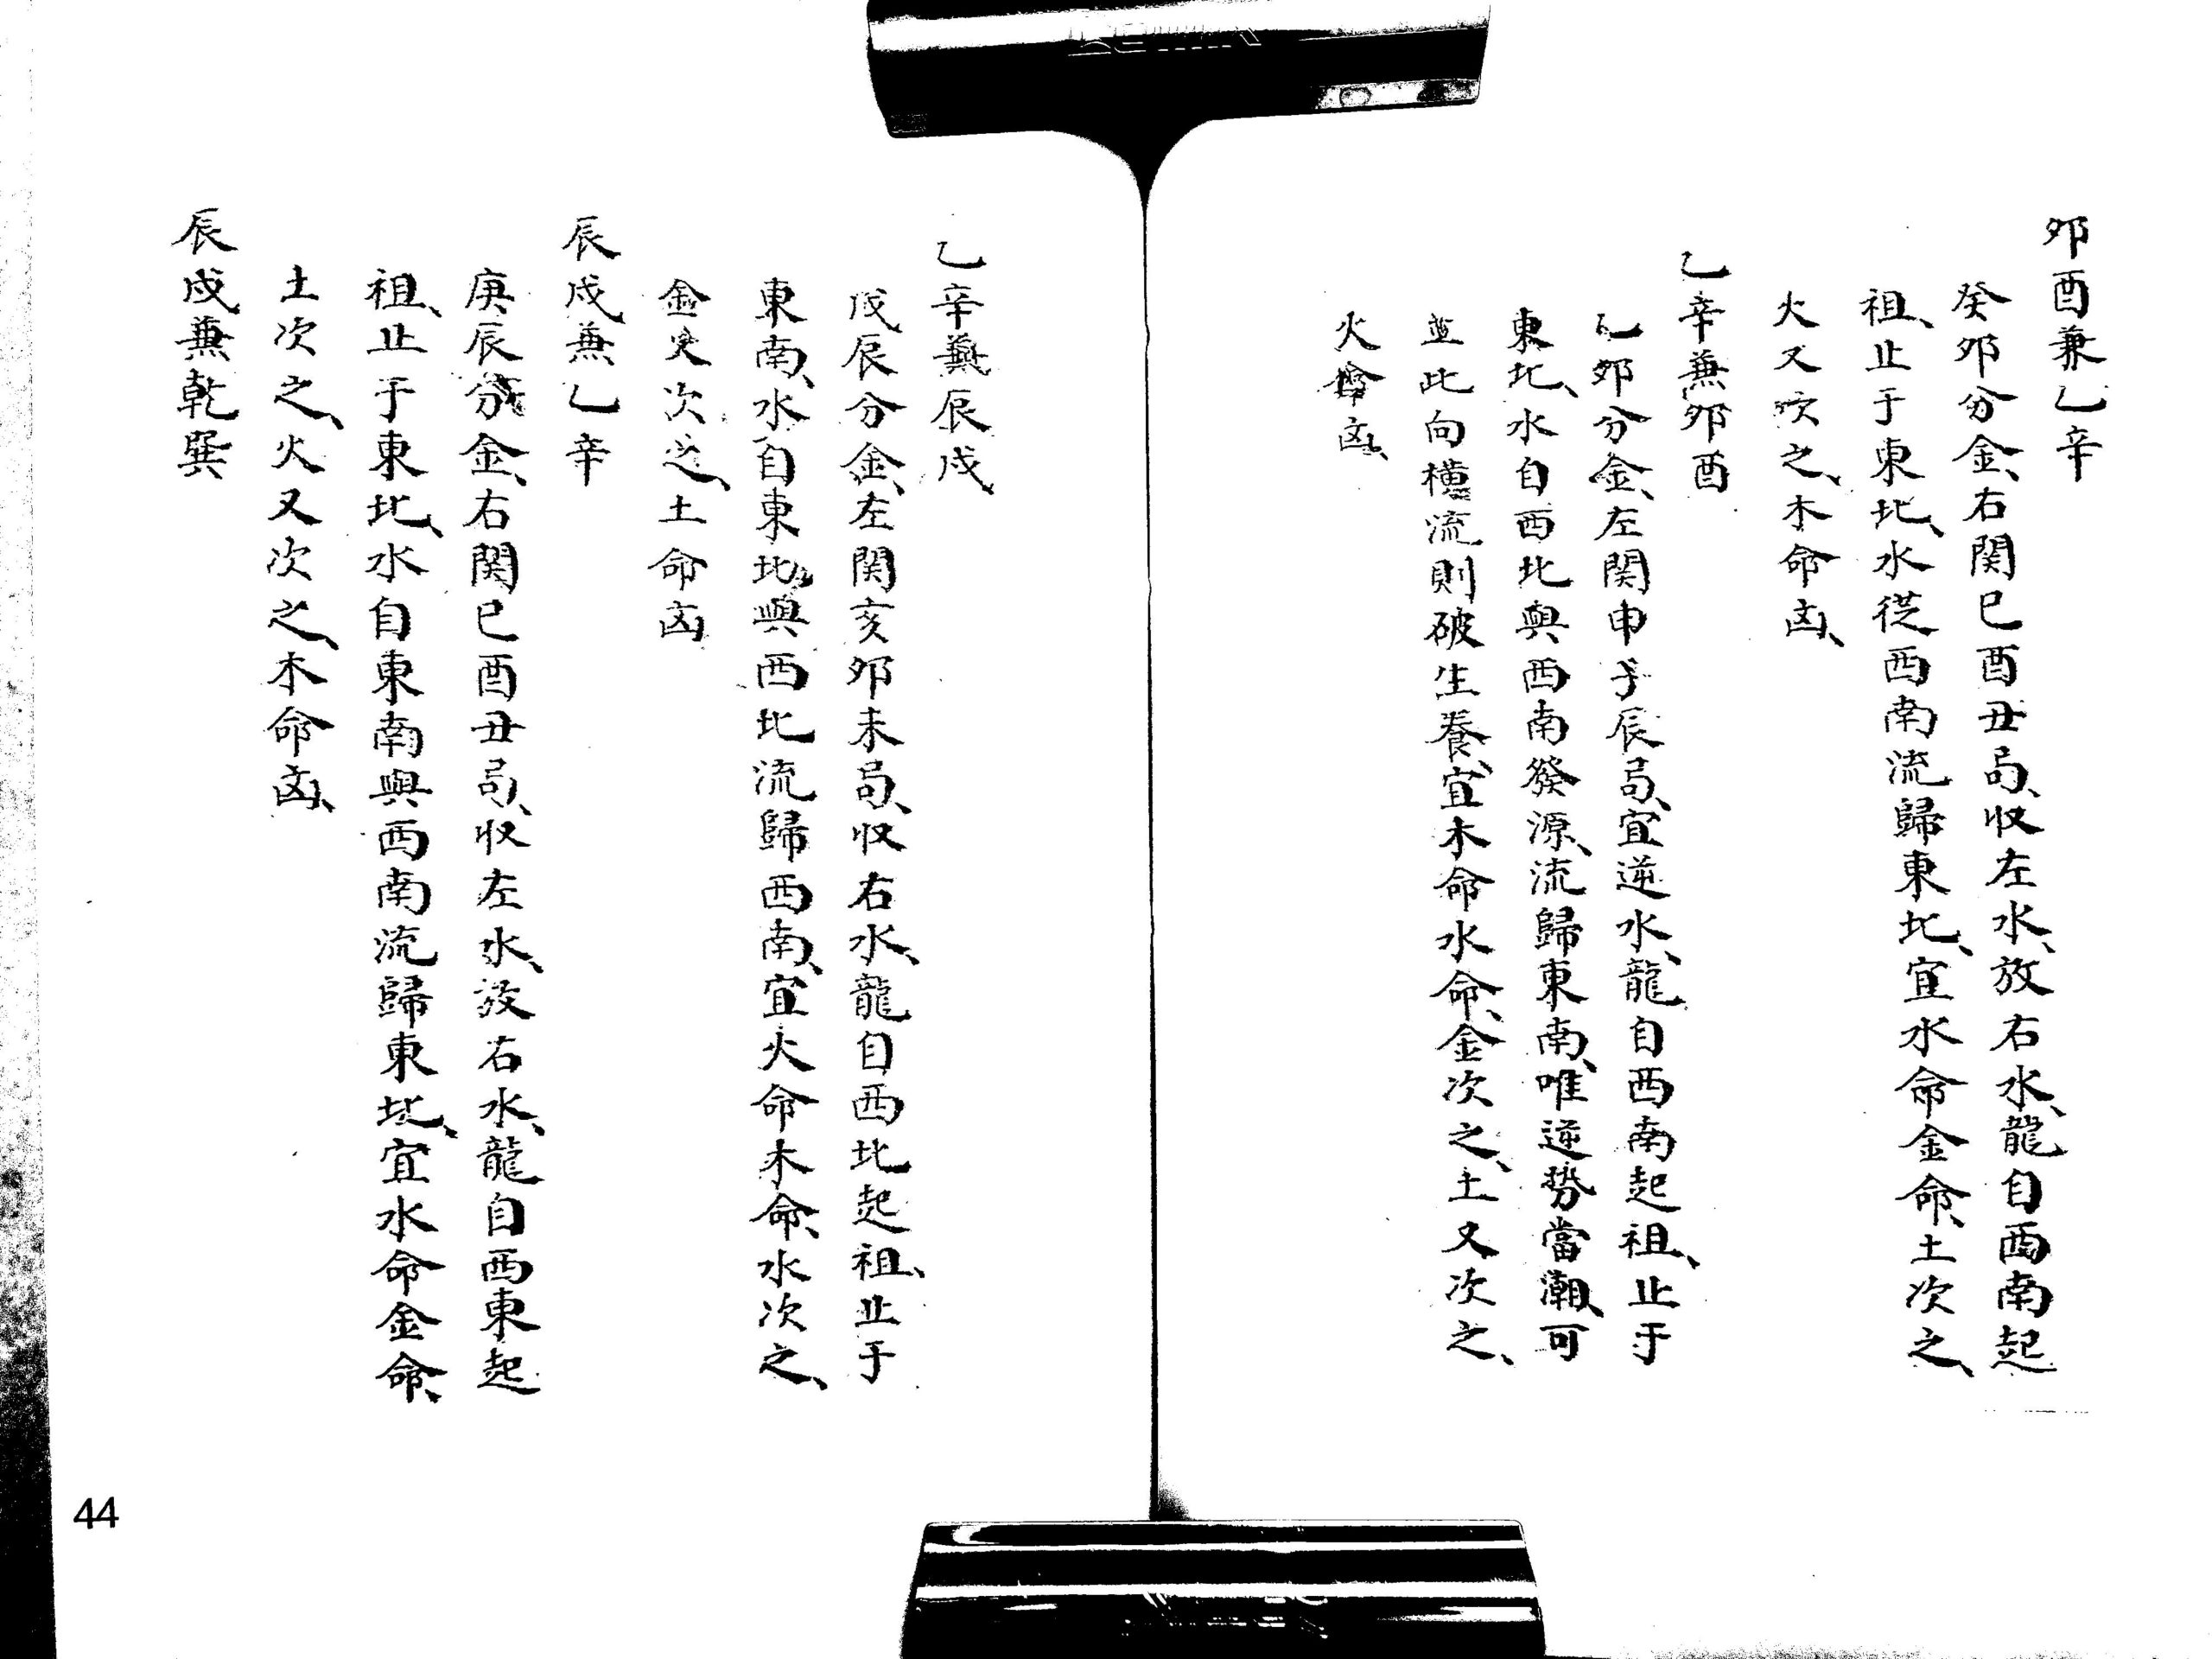 夘酉兼乙辛
癸夘分金、右関巳酉丑局、収左水、放右水、龍自西南起
祖、止于東北、水從西南流歸東北、宜水命金命、土次之、
火又次之、木命凶、
乙辛兼夘酉
乙夘分金、左関申子辰局、宜逆水、龍自西南起祖、止于
東北、水自西北與西南發源、流歸東南、唯逆势當潮、可
並此向橫流則破生養、宜木命水命、金次之、土又次之、
火命凶、
乙辛兼辰戌
戊辰分金、左関亥夘未局、収右水、龍自西北起祖、止于
東南、水自東北與西北流歸西南、宜火命木命、水次之、
金又次之、土命凶
辰戌兼乙辛
庚辰分金、右関巳酉丑局、収左水、放右水、龍自西東起
祖、止于東北、水自東南與西南流歸東北、宜水命金命、
土次之、火又次之、木命凶、
辰戌兼乾巽
44